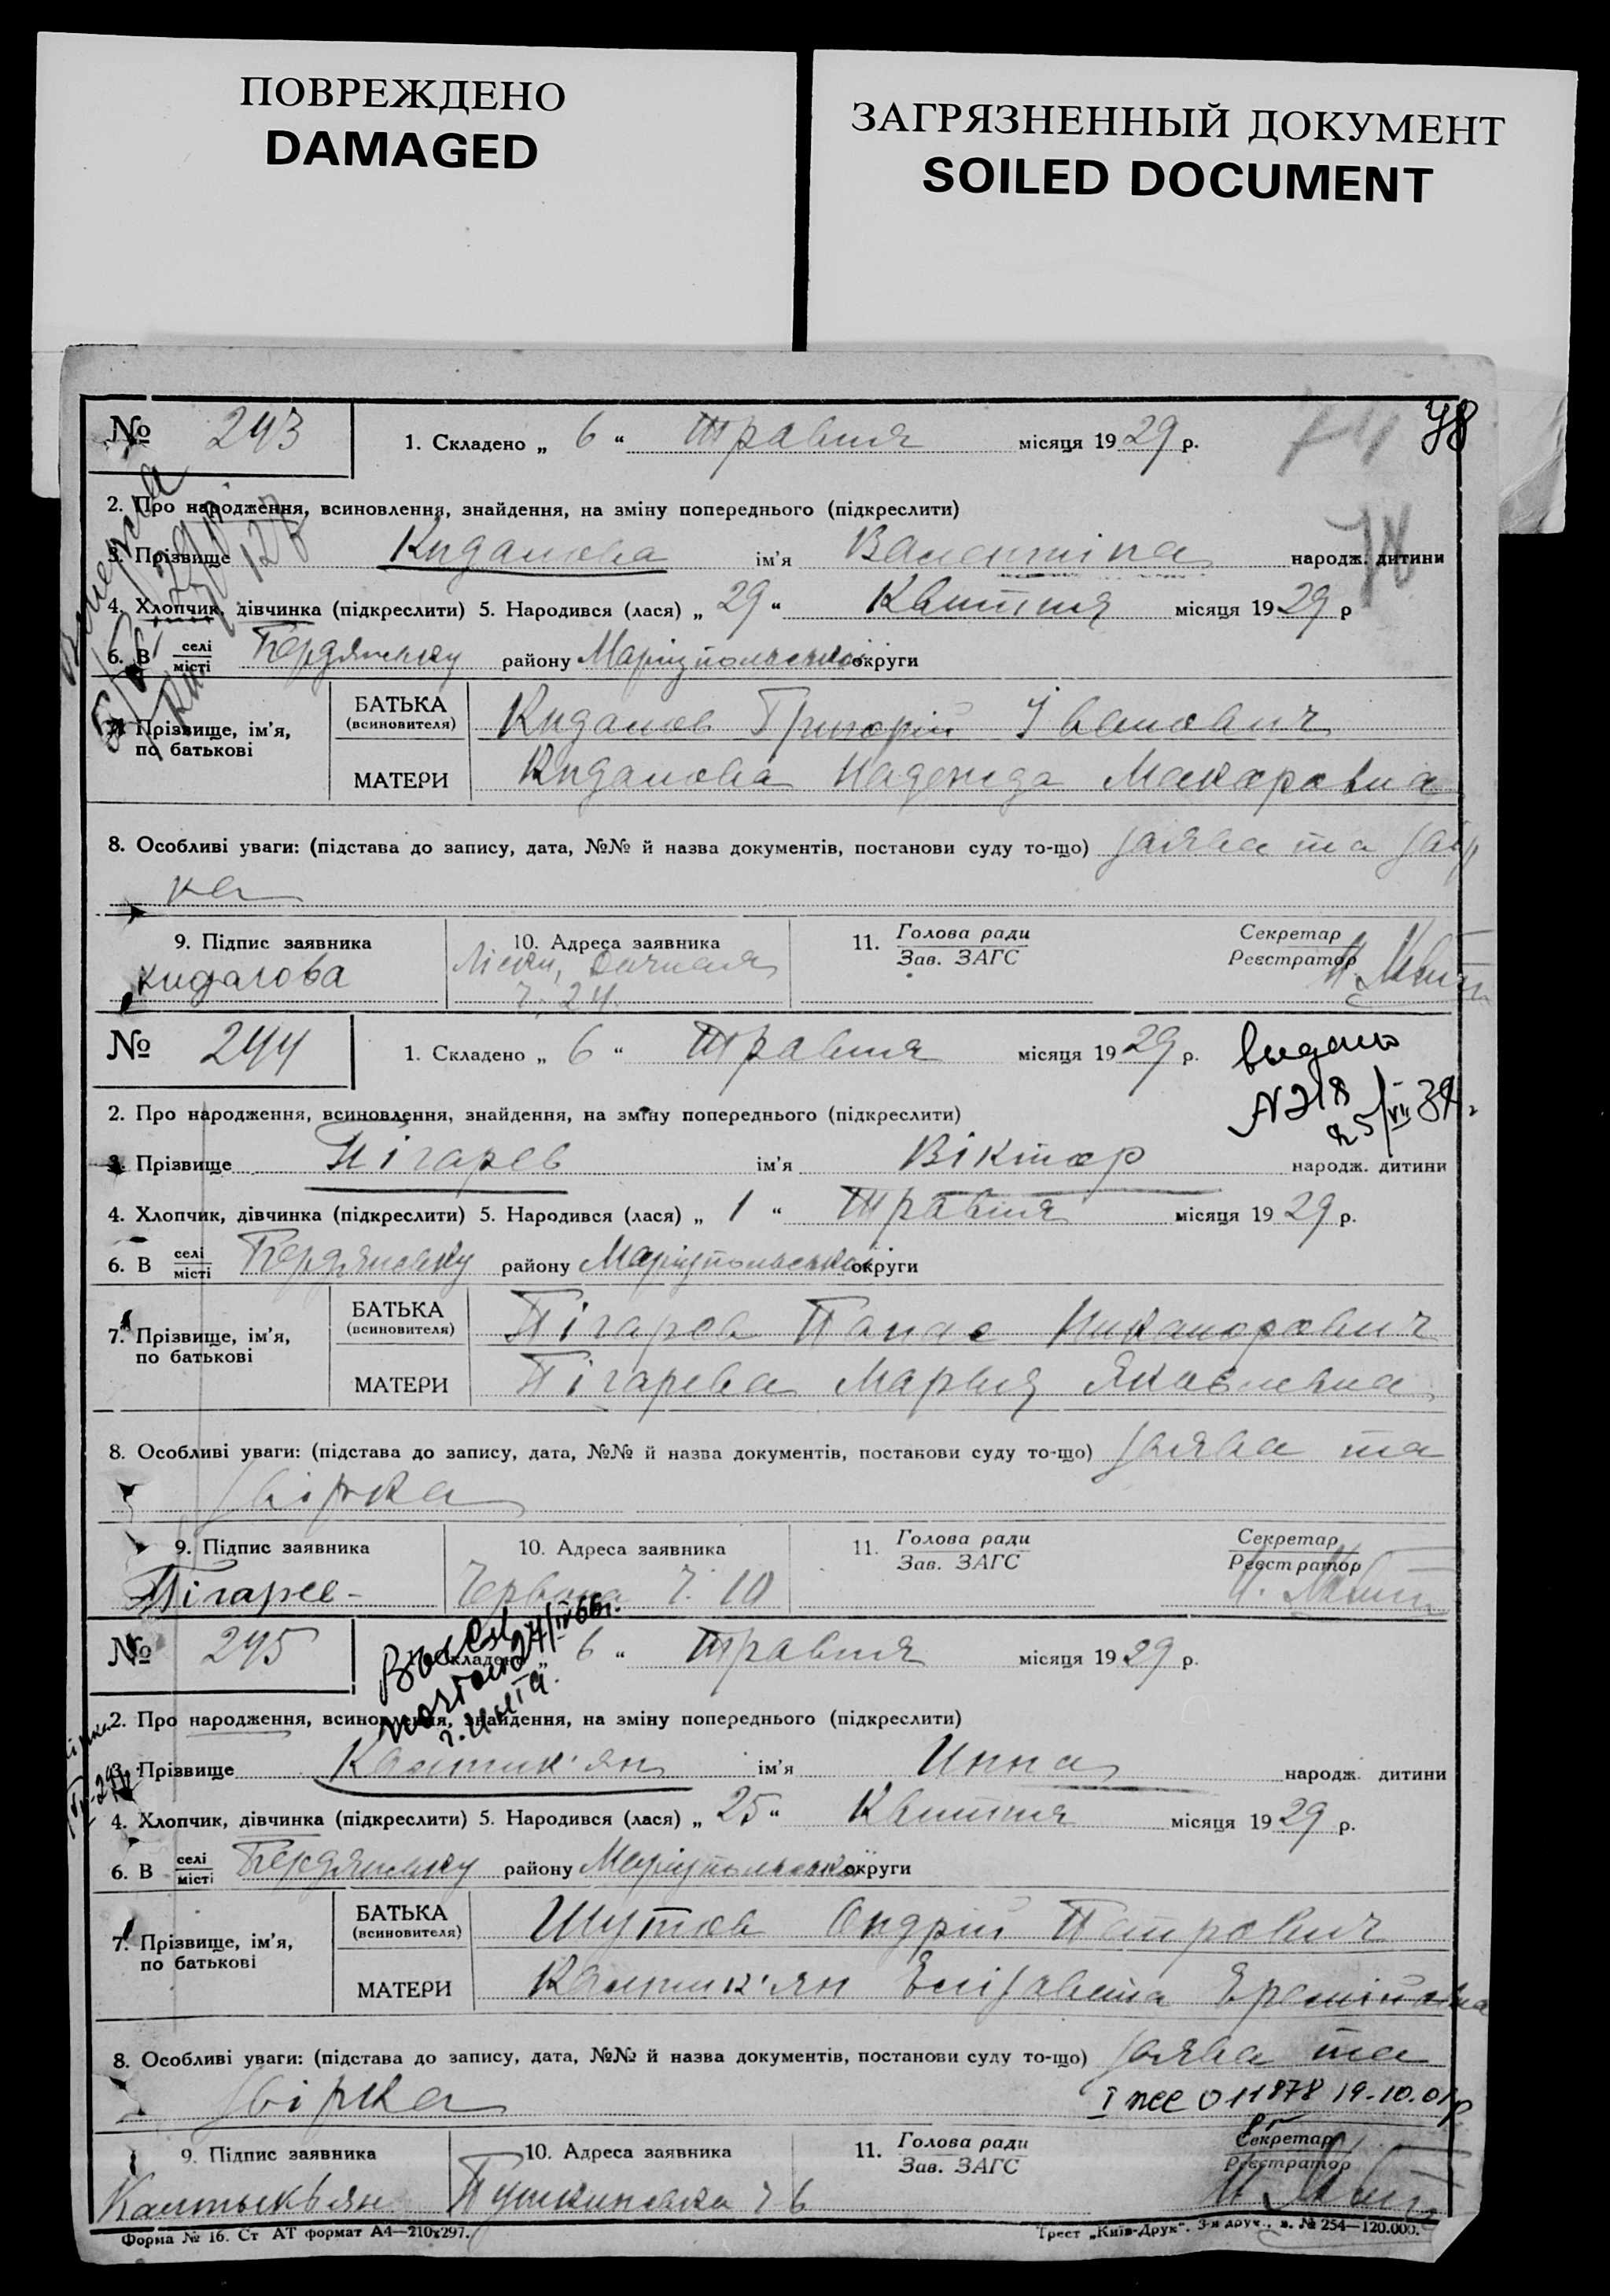 ПОВРЕЖДЕНО
DAMAGED
ЗАГРЯЗНЕННЫЙ ДОКУМЕНТ
SOILED DOCUMENT
78
№ 243 1. Складено „ 6 “ травня місяця 1929 р.
78
2. Про народження, всиновлення, знайдення, на зміну попереднього (підкреслити)
3. Прізвище Кидалова ім’я Валентина народж. дитини
4. Хлопчик, дівчинка (підкреслити) 5. Народився (лася) „ 29 “ Квітня місяця 1929 р
6. В селі
місті Бердянську району Маріупольської округи
7. Прізвище, ім’я, по батькові
БАТЬКА (всиновителя) Кидалов Григорій Іванович
МАТЕРИ Кидалова Надежда Макаровна
8. Особливі уваги: (підстава до запису, дата, №№ й назва документів, постанови суду то-що) заява та звір
ка
9. Підпис заявника 10. Адреса заявника 11. Голова ради
Зав. ЗАГС Секретар
Реєстратор
Кидалова Ліски, Дачная
ч. 24
№ 244 1. Складено „ 6 “ травня місяця 1929 р.
выдано
N 218
25/VII 39.
2. Про народження, всиновлення, знайдення, на зміну попереднього (підкреслити)
3. Прізвище Пігарев ім’я Віктор народж. дитини
4. Хлопчик, дівчинка (підкреслити) 5. Народився (лася) „ 1 “ травня місяця 1929 р.
6. В селі
місті Бердянську району Маріупольської округи
7. Прізвище, ім’я, по батькові
БАТЬКА (всиновителя) Пігарев Панас Никанорович
МАТЕРИ Пігарева Марья Яковлевна
8. Особливі уваги: (підстава до запису, дата, №№ й назва документів, постанови суду то-що) заява та
звірка
9. Підпис заявника 10. Адреса заявника 11. Голова ради
Зав. ЗАГС Секретар
Реєстратор
Пігарев Червона ч. 10
№ 245 1. Складено „ 6 “ травня місяця 1929 р.
27/IV 66г.
2. Про народження, всиновлення, знайдення, на зміну попереднього (підкреслити)
3. Прізвище Калтик’ян ім’я Инна народж. дитини
4. Хлопчик, дівчинка (підкреслити) 5. Народився (лася) „ 25 “ Квітня місяця 1929 р.
6. В селі
місті Бердянську району Маріупольської округи
7. Прізвище, ім’я, по батькові
БАТЬКА (всиновителя) Шутов Андрій Петрович
МАТЕРИ Калтик’ян Елізавета Еремійовна
8. Особливі уваги: (підстава до запису, дата, №№ й назва документів, постанови суду то-що) заява та
звірка
011878 19.10.01р
9. Підпис заявника 10. Адреса заявника 11. Голова ради
Зав. ЗАГС Секретар
Реєстратор
Калтыкьян Пушкинська ч 6
Форма № 16. Ст АТ формат А4—210х297. Трест „Київ-Друк“. 3-я друк., з. № 254—120.000.